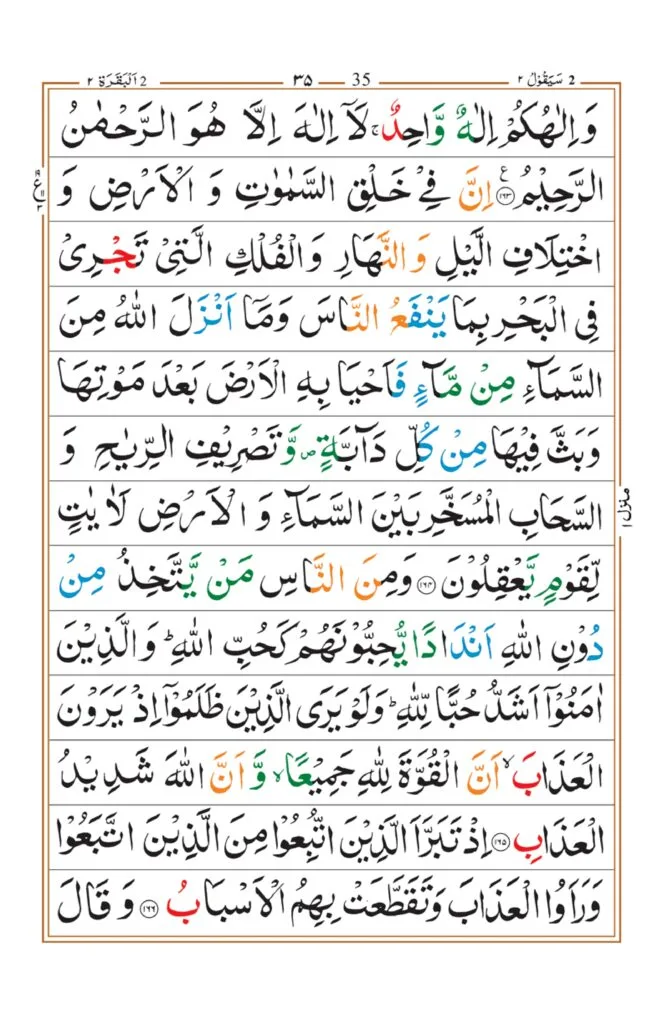 2 سَيَقُوْلُ ٢ 35 ٣٥ 2 اَلْبَقَرَة ٢
وَاِلٰهُكُمْ اِلٰهٌ وَّاحِدٌ ۚ لَاۤ اِلٰهَ اِلَّا هُوَ الرَّحْمٰنُ
الرَّحِيْمُ ۧ‏﴿۱۶۳﴾ اِنَّ فِيْ خَلْقِ السَّمٰوٰتِ وَ الْاَرْضِ وَ
اخْتِلَافِ الَّيْلِ وَالنَّهَارِ وَالْفُلْكِ الَّتِيْ تَجْرِيْ
فِي الْبَحْرِ بِمَا يَنْفَعُ النَّاسَ وَمَاۤ اَنْزَلَ اللّٰهُ مِنَ
السَّمَآءِ مِنْ مَّآءٍ فَاَحْيَا بِهِ الْاَرْضَ بَعْدَ مَوْتِهَا
وَبَثَّ فِيْهَا مِنْ كُلِّ دَآبَّةٍ ۪ وَّتَصْرِيْفِ الرِّيٰحِ وَ
السَّحَابِ الْمُسَخَّرِ بَيْنَ السَّمَآءِ وَ الْاَرْضِ لَاٰيٰتٍ
لِّقَوْمٍ يَّعْقِلُوْنَ ﴿۱۶۴﴾ وَمِنَ النَّاسِ مَنْ يَّتَّخِذُ مِنْ
دُوْنِ اللّٰهِ اَنْدَادًا يُّحِبُّوْنَهُمْ كَحُبِّ اللّٰهِ ؕ وَالَّذِيْنَ
اٰمَنُوْۤا اَشَدُّ حُبًّا لِّلّٰهِ ؕ وَلَوْ يَرَى الَّذِيْنَ ظَلَمُوْۤا اِذْ يَرَوْنَ
الْعَذَابَ ۙ اَنَّ الْقُوَّةَ لِلّٰهِ جَمِيْعًا ۙ وَّاَنَّ اللّٰهَ شَدِيْدُ
الْعَذَابِ ﴿۱۶۵﴾ اِذْ تَبَرَّاَ الَّذِيْنَ اتُّبِعُوْا مِنَ الَّذِيْنَ اتَّبَعُوْا
وَرَاَوُا الْعَذَابَ وَتَقَطَّعَتْ بِهِمُ الْاَسْبَابُ ﴿۱۶۶﴾ وَ قَالَ
منزل ۱